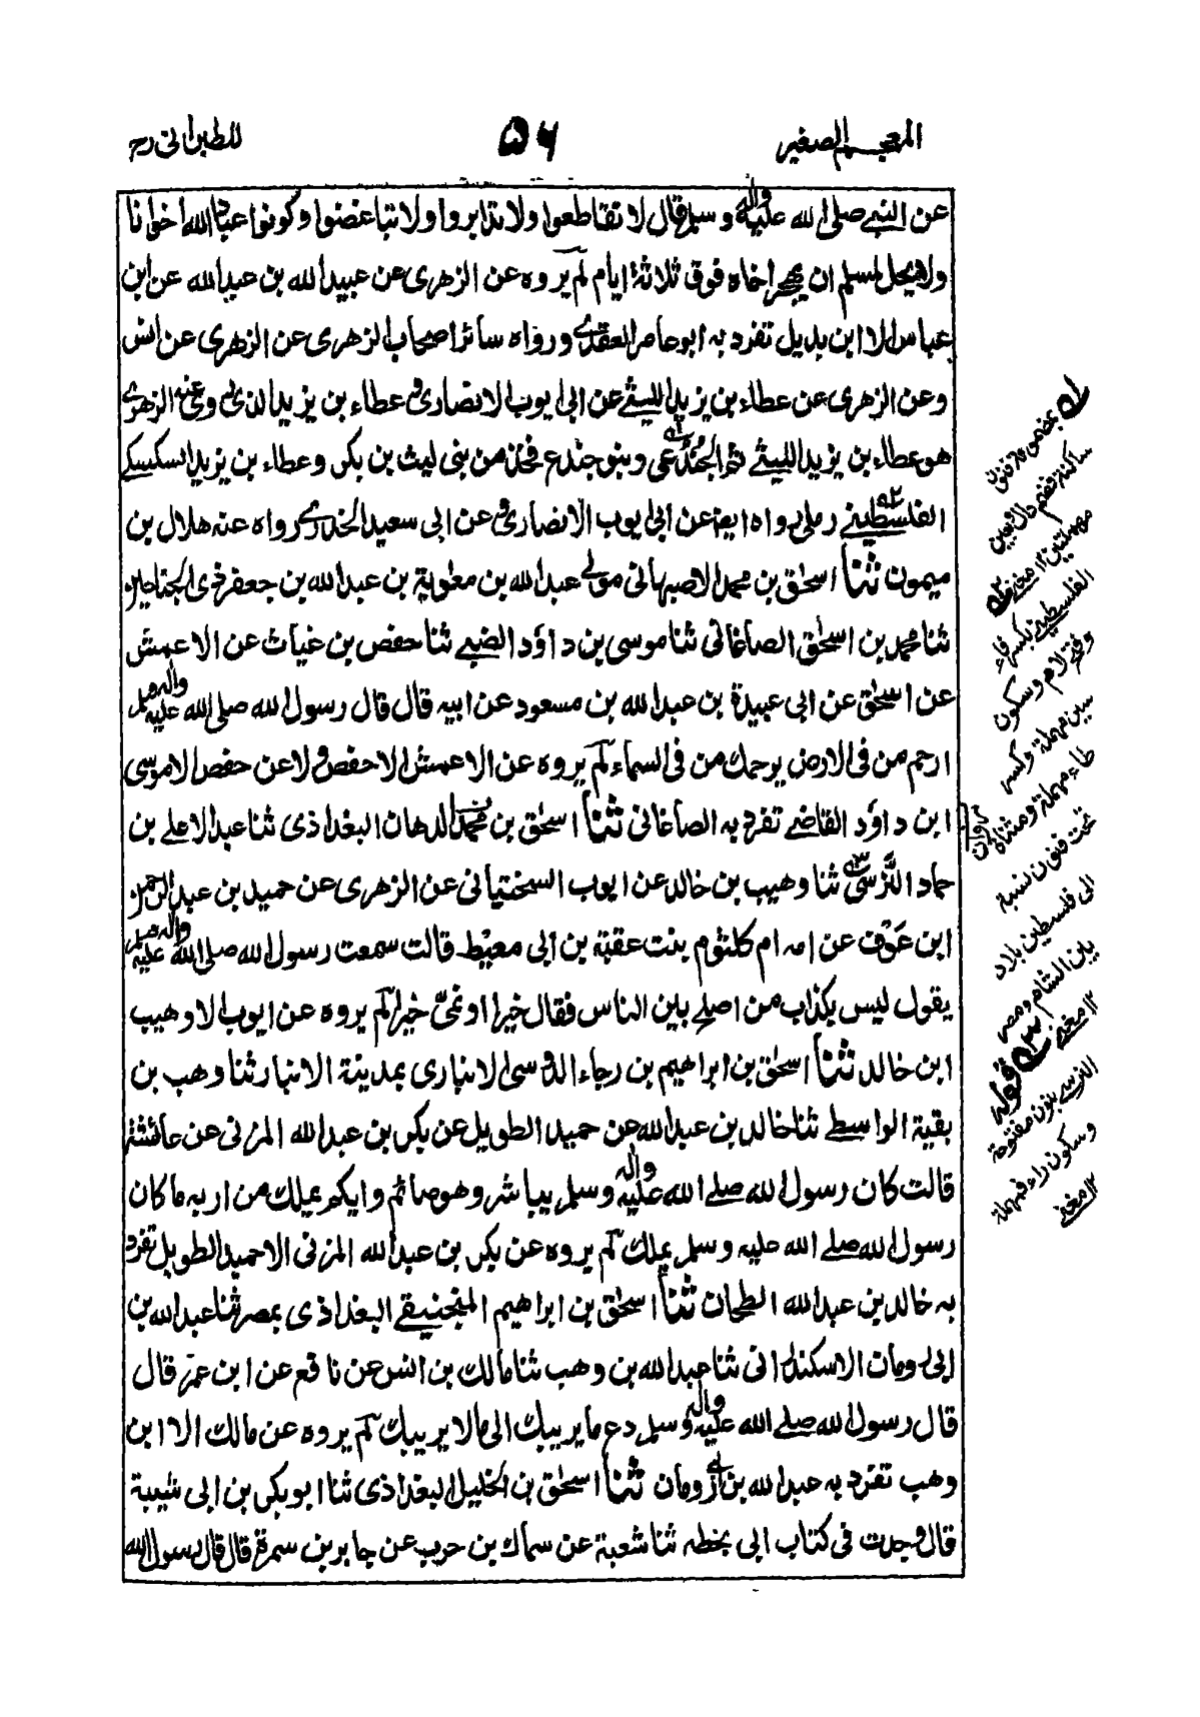 المعجم الصغير
٥٦
للطبرانی رح
عن النبے صلی الله علیه واٰله وسلم قال لا تقاطعوا ولا تدابروا ولا تباغضوا وکونوا عباد الله اخوانا
ولا یحل لمسلم ان یهجر اخاه فوق ثلاثة ایام لم یروه عن الزهری عن عبید الله بن عبد الله عن ابن
عباس الا ابن بدیل تفرد به ابو عامر العقدے ورواه سائر اصحاب الزهری عن الزهری عن انس
وعن الزهری عن عطاء بن یزید اللیثے عن ابی ایوب الانصاری وعطاء بن یزید الذی وعنه الزهرے
هو عطاء بن یزید اللیثے ثم الجُنْدَعی وبنو جندع فخذ من بنی لیث بن بکر وعطاء بن یزید السکسکے
الفلسطینے رملی رواه ایضا عن ابی ایوب الانصاری وعن ابی سعید الخدرے رواه عنه هلال بن
میمون ثنا اسحٰق بن محمد الاصبهانی مولے عبد الله بن معٰویة بن عبد الله بن جعفر ذی الجناحین
ثنا محمد بن اسحٰق الصاغانی ثنا موسی بن داؤد الضبے ثنا حفص بن غیاث عن الاعمش
عن اسحٰق عن ابی عبیدة بن عبد الله بن مسعود عن ابیه قال قال رسول الله صلی الله علیه واٰله وسلم
ارحم من فی الارض یرحمك من فی السماء لم یروه عن الاعمش الا حفص ولا عن حفص الا موسی
ابن داؤد القاضے تفرد به الصاغانی ثنا اسحٰق بن محمد الدهان البغداذی ثنا عبد الاعلے بن
حماد النَّرْسی ثنا وهیب بن خالد عن ایوب السختیانی عن الزهری عن حمید بن عبد الرحمن
ابن عَوْف عن امه ام کلثوم بنت عقبة بن ابی معیط قالت سمعت رسول الله صلی الله علیه واٰله وسلم
یقول لیس بکذاب من اصلح بین الناس فقال خیرا او نمیّٰ خیرا لم یروه عن ایوب الا وهیب
ابن خالد ثنا اسحٰق بن ابراهیم بن رجاء الدوسی الانباری بمدینة الانبار ثنا وهب بن
بقیة الواسطے ثنا خالد بن عبد الله عن حمید الطویل عن بکر بن عبد الله المزنی عن عائشة
قالت کان رسول الله صلے الله علیه واٰله وسلم یباشر وهو صائم وایکم یملك من اربه ما کان
رسول الله صلے الله علیه وسلم یملك لم یروه عن بکر بن عبد الله المزنی الا حمید الطویل تفرد
به خالد بن عبد الله الطحان ثنا اسحٰق بن ابراهیم المنجنیقے البغداذی بمصر ثنا عبد الله بن
ابی رومان الاسکندرانی ثنا عبد الله بن وهب ثنا مالك بن انس عن نافع عن ابن عمر قال
قال رسول الله صلے الله علیه واٰله وسلم دع ما یریبك الی ما لا یریبك لم یروه عن مالك الا ابن
وهب تفرد به عبد الله بن ابی رومان ثنا اسحٰق بن الخلیل البغداذی ثنا ابو بکر بن ابی شیبة
قال وجدت فی کتاب ابی بخطه ثنا شعبة عن سماك بن حرب عن جابر بن سمرة قال قال رسول الله
بضمومة فنون
ساکنة ففتح دال وعین
مهملتین ١٢ مغنے
الفلسطینے بکسر فاء
وفتح لام وسکون
سین مهملة وکسر
طاء مهملة ومثناة
تحت فنون نسبة
الی فلسطین بلاد
بین الشام ومصر
١٢ مغنے
قوله
النرسے بنون مفتوحة
وسکون راء فمهملة
١٢ مغنے